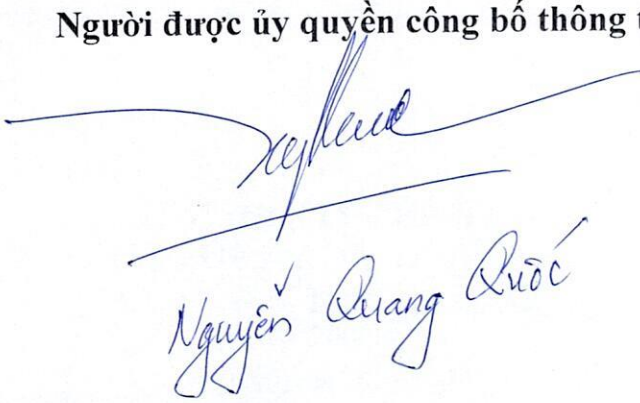 Người được ủy quyền công bố thông t
Nguyễn Quang Quốc